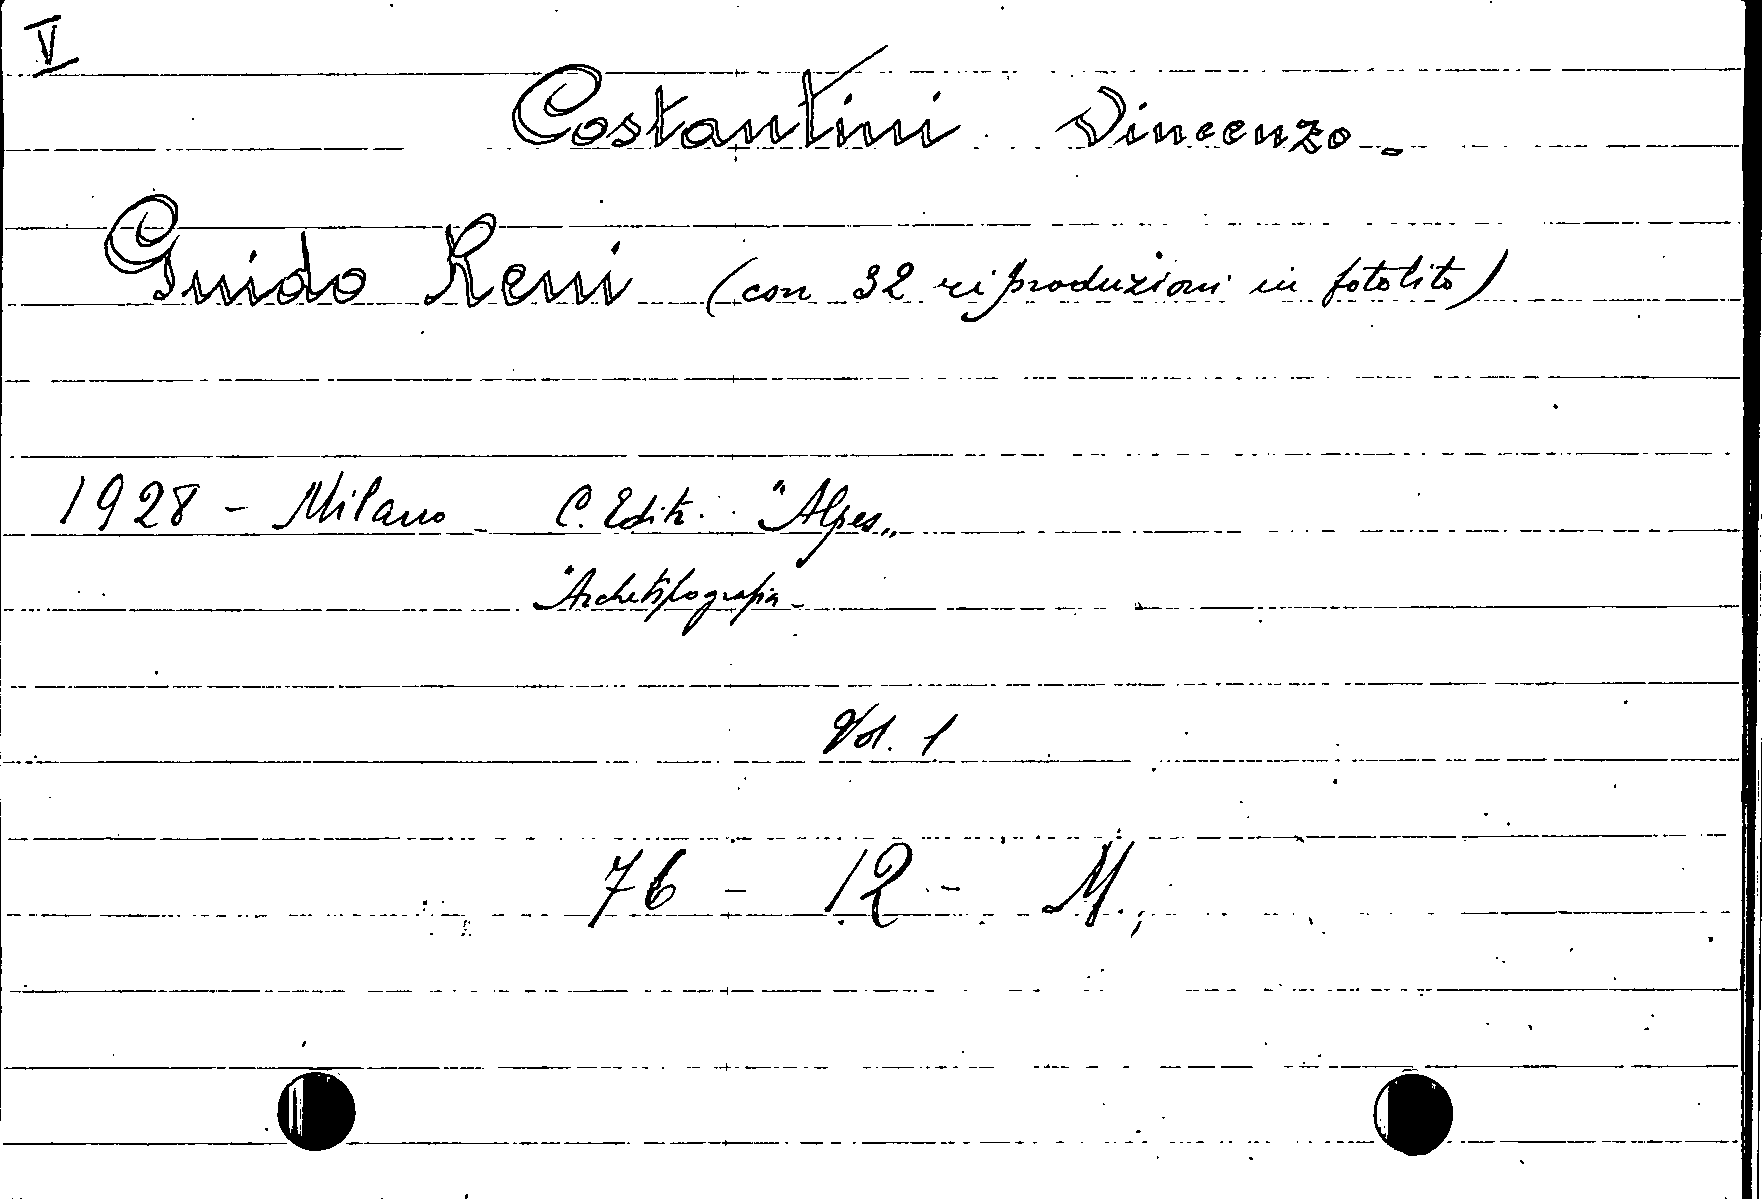 V
Costantini Vincenzo -
Guido Reni (con 32 riproduzioni in fotolito)
1928 - Milano - C. Editr. "Alpes"
"Archetipografia"
Vol. 1
76 - 12 - M.